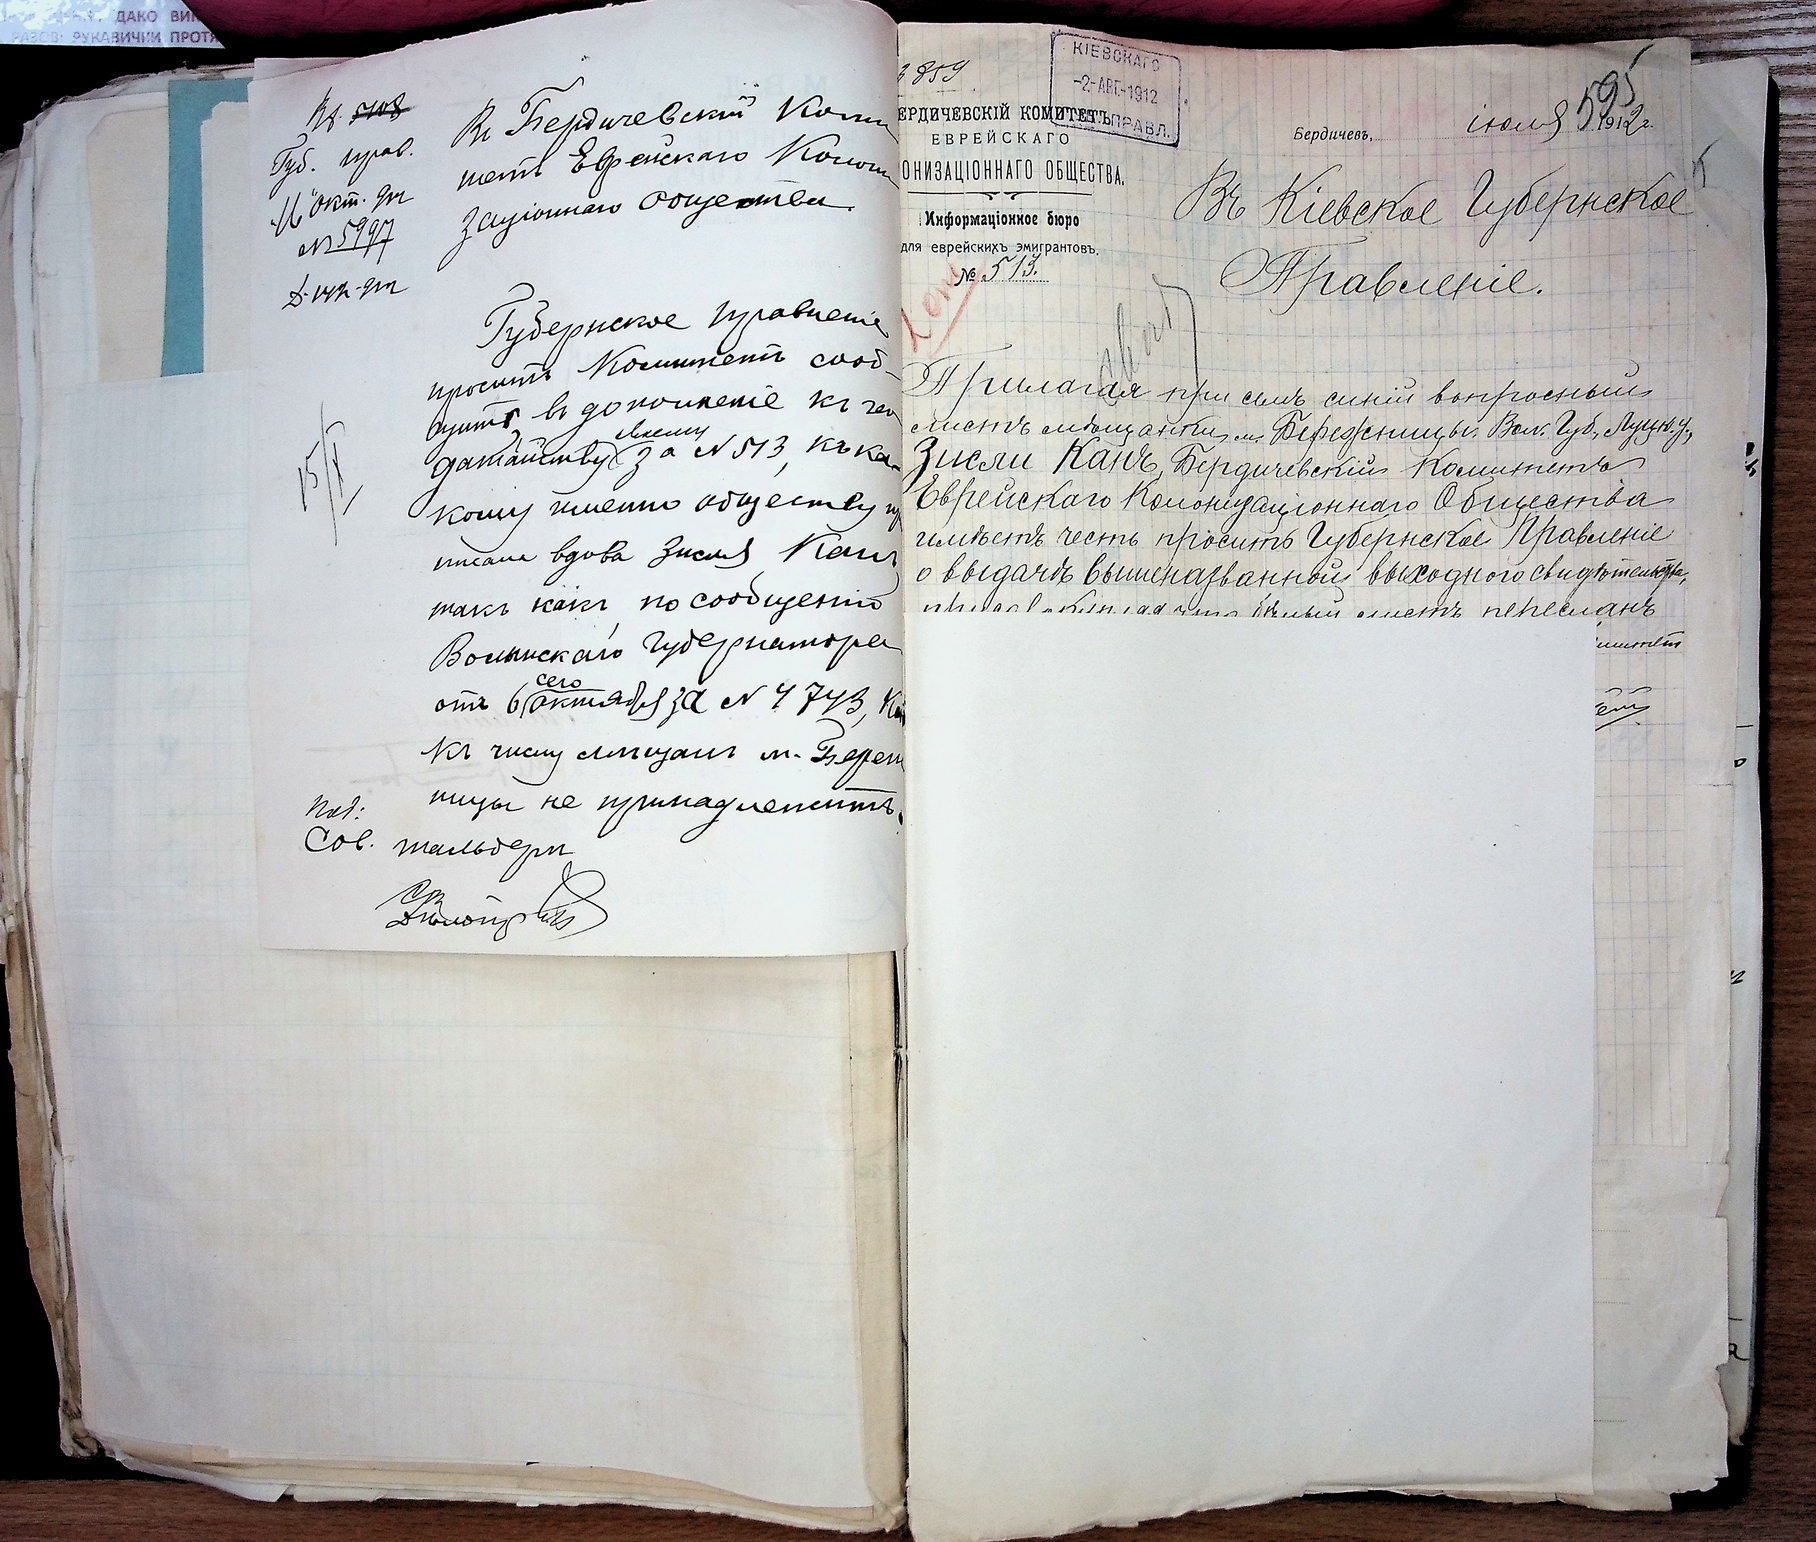 ДАКО ВИК
РАЗОВІ РУКАВИЧКИ ПРОТЯ
Губ. прав.
окт. дня
№ 5997
Въ Бердичевскій Коми
тетъ Еврейскаго Колони
заціоннаго Общества.
Губернское Правленіе
проситъ Комитетъ сооб-
щить въ дополненіе къ хо
датайству своему за № 513, къ ка-
кому именно обществу пр
писана вдова Зисля Канъ
такъ какъ, по сообщенію
Волынскаго Губернатора
отъ 6 сего октября за № 4743, Ка
къ числу мѣщанъ м. Береж
ницы не принадлежитъ.
15/X
Под:
Сов.
3859
КІЕВСКАГО
-2-АВГ.-1912
ГУБ. ПРАВЛ.
595
ЕРДИЧЕВСКІЙ КОМИТЕТЪ
ЕВРЕЙСКАГО
ОНИЗАЦІОННАГО ОБЩЕСТВА.
Информаціонное бюро
для еврейскихъ эмигрантовъ.
№ 513.
Бердичевъ, іюля 1912 г.
Въ Кіевское Губернское
Правленіе.
Прилагая при семъ синій вопросный
листъ мѣщанки м. Бережницы, Вол. Губ., Луцк. у.,
Зисли Канъ, Бердичевскій Комитетъ
Еврейскаго Колонизаціоннаго Общества
имѣетъ честь просить Губернское Правленіе
о выдачѣ вышеназванной выходного свидѣтельства,
листъ пересланъ